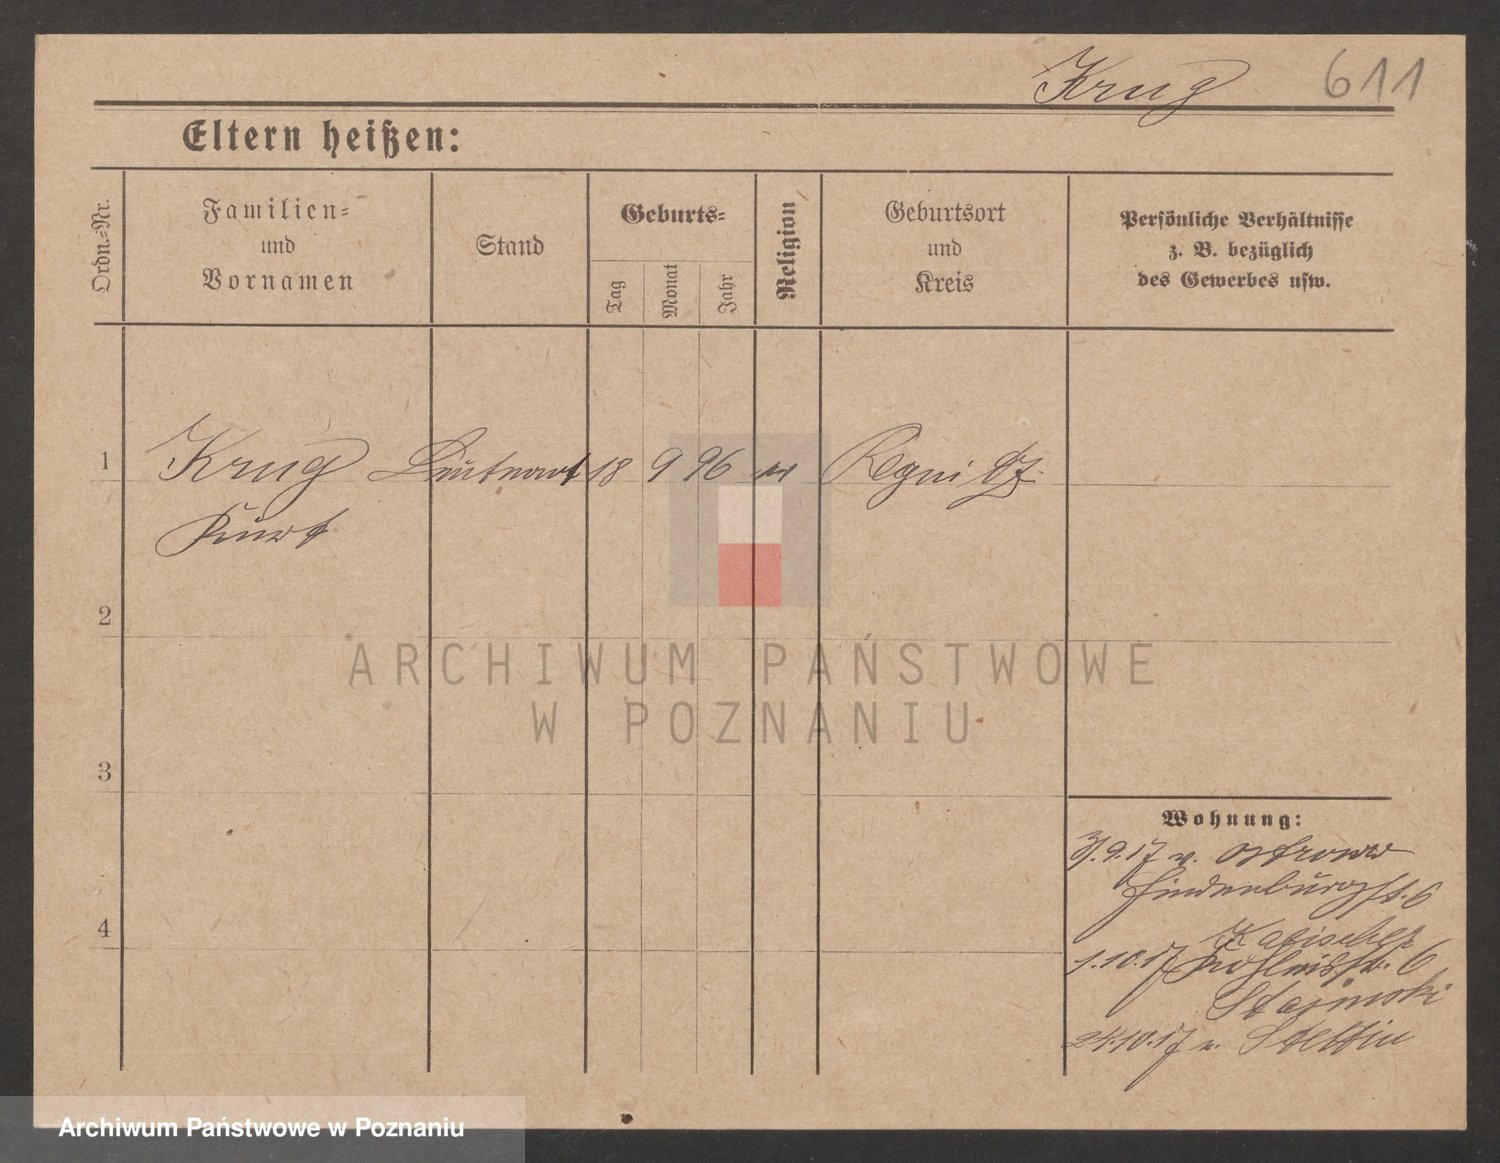 Krug 611
Eltern heißen:
Ordn.-Nr.
Familien-
und
Vornamen
Stand
Geburts-
Tag
Monat
Jahr
Religion
Geburtsort
und
Kreis
Persönliche Verhältnisse
z. B. bezüglich
des Gewerbes usw.
1 Krug Leutnant 18 9 96
Kurt
2
3
4
Wohnung:
3/.9.17 v. Ostrowo
Hindenburgst. 6
1.10.17 6
24.10.17 n. Stettin
ARCHIWUM PAŃSTWOWE
W POZNANIU
Archiwum Państwowe w Poznaniu